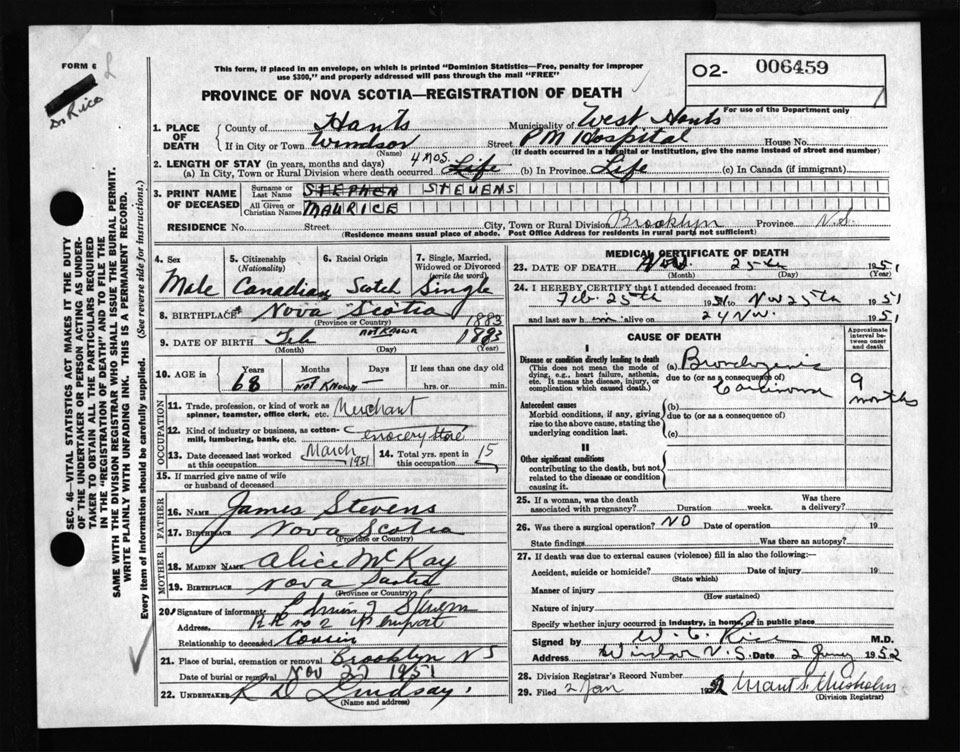 FORM 6
Dr Rice
This form, if placed in an envelope, on which is printed "Dominion Statistics—Free, penalty for improper
use $300," and properly addressed will pass through the mail "FREE"
O2- 006459
PROVINCE OF NOVA SCOTIA—REGISTRATION OF DEATH
For use of the Department only
1. PLACE OF DEATH
County of Hants Municipality of West Hants
If in City or Town Windsor Street P M Hospital House No.
(Name) (If death occurred in a hospital or institution, give the name instead of street and number)
2. LENGTH OF STAY (in years, months and days)
(a) In City, Town or Rural Division where death occurred 4 MOS. Life (b) In Province Life (c) In Canada (if immigrant)
3. PRINT NAME OF DECEASED
Surname or Last Name STEPHEN STEVENS
All Given or Christian Names MAURICE
RESIDENCE No. Street City, Town or Rural Division Brooklyn Province N.S.
(Residence means usual place of abode. Post Office Address for residents in rural parts not sufficient)
SEC. 46—VITAL STATISTICS ACT MAKES IT THE DUTY
OF THE UNDERTAKER OR PERSON ACTING AS UNDER-
TAKER TO OBTAIN ALL THE PARTICULARS REQUIRED
IN THE "REGISTRATION OF DEATH" AND TO FILE THE
SAME WITH THE DIVISION REGISTRAR WHO SHALL ISSUE THE BURIAL PERMIT.
WRITE PLAINLY WITH UNFADING INK. THIS IS A PERMANENT RECORD.
Every item of information should be carefully supplied. (See reverse side for instructions.)
4. Sex Male
5. Citizenship (Nationality) Canadian
6. Racial Origin Scotch
7. Single, Married, Widowed or Divorced (write the word) Single
8. BIRTHPLACE Nova Scotia
(Province or Country)
1883
9. DATE OF BIRTH Feb not Known 1883
(Month) (Day) (Year)
10. AGE in Years 68 Months Not Known Days — If less than one day old hrs. or min.
OCCUPATION
11. Trade, profession, or kind of work as spinner, teamster, office clerk, etc. Merchant
12. Kind of industry or business, as cotton-mill, lumbering, bank, etc. Grocery Store
13. Date deceased last worked at this occupation March 1951
14. Total yrs. spent in this occupation 15
15. If married give name of wife or husband of deceased
FATHER
16. NAME James Stevens
17. BIRTHPLACE Nova Scotia
(Province or Country)
MOTHER
18. MAIDEN NAME Alice McKay
19. BIRTHPLACE Nova Scotia
(Province or Country)
20. Signature of informant
Address R R no 2 Newport
Relationship to deceased Cousin
21. Place of burial, cremation or removal Brooklyn N S
Date of burial or removal Nov 27 1951
22. UNDERTAKER R D Lindsay
(Name and address)
MEDICAL CERTIFICATE OF DEATH
23. DATE OF DEATH Nov. 25th 1951
(Month) (Day) (Year)
24. I HEREBY CERTIFY that I attended deceased from:
Feb. 25th 1951 to Nov 25th 1951
and last saw him alive on 24 Nov. 1951
CAUSE OF DEATH
Approximate interval between onset and death
I
Disease or condition directly leading to death
(This does not mean the mode of dying, e.g., heart failure, asthenia, etc. It means the disease, injury, or complication which caused death.)
(a) Bronchogenic
due to (or as a consequence of)
Carcinoma
9 months
Antecedent causes
Morbid conditions, if any, giving rise to the above cause, stating the underlying condition last.
(b)
due to (or as a consequence of)
(c)
II
Other significant conditions
contributing to the death, but not related to the disease or condition causing it.
25. If a woman, was the death associated with pregnancy? Duration weeks. Was there a delivery?
26. Was there a surgical operation? NO Date of operation 19
State findings Was there an autopsy?
27. If death was due to external causes (violence) fill in also the following:—
Accident, suicide or homicide? Date of injury 19
(State which)
Manner of injury
(How sustained)
Nature of injury
Specify whether injury occurred in industry, in home, or in public place
Signed by W. C. Rice M.D.
Address Windsor N.S. Date 2 Jany 1952
28. Division Registrar's Record Number
29. Filed 2 Jan 1952 Grant S. Chisholm
(Division Registrar)